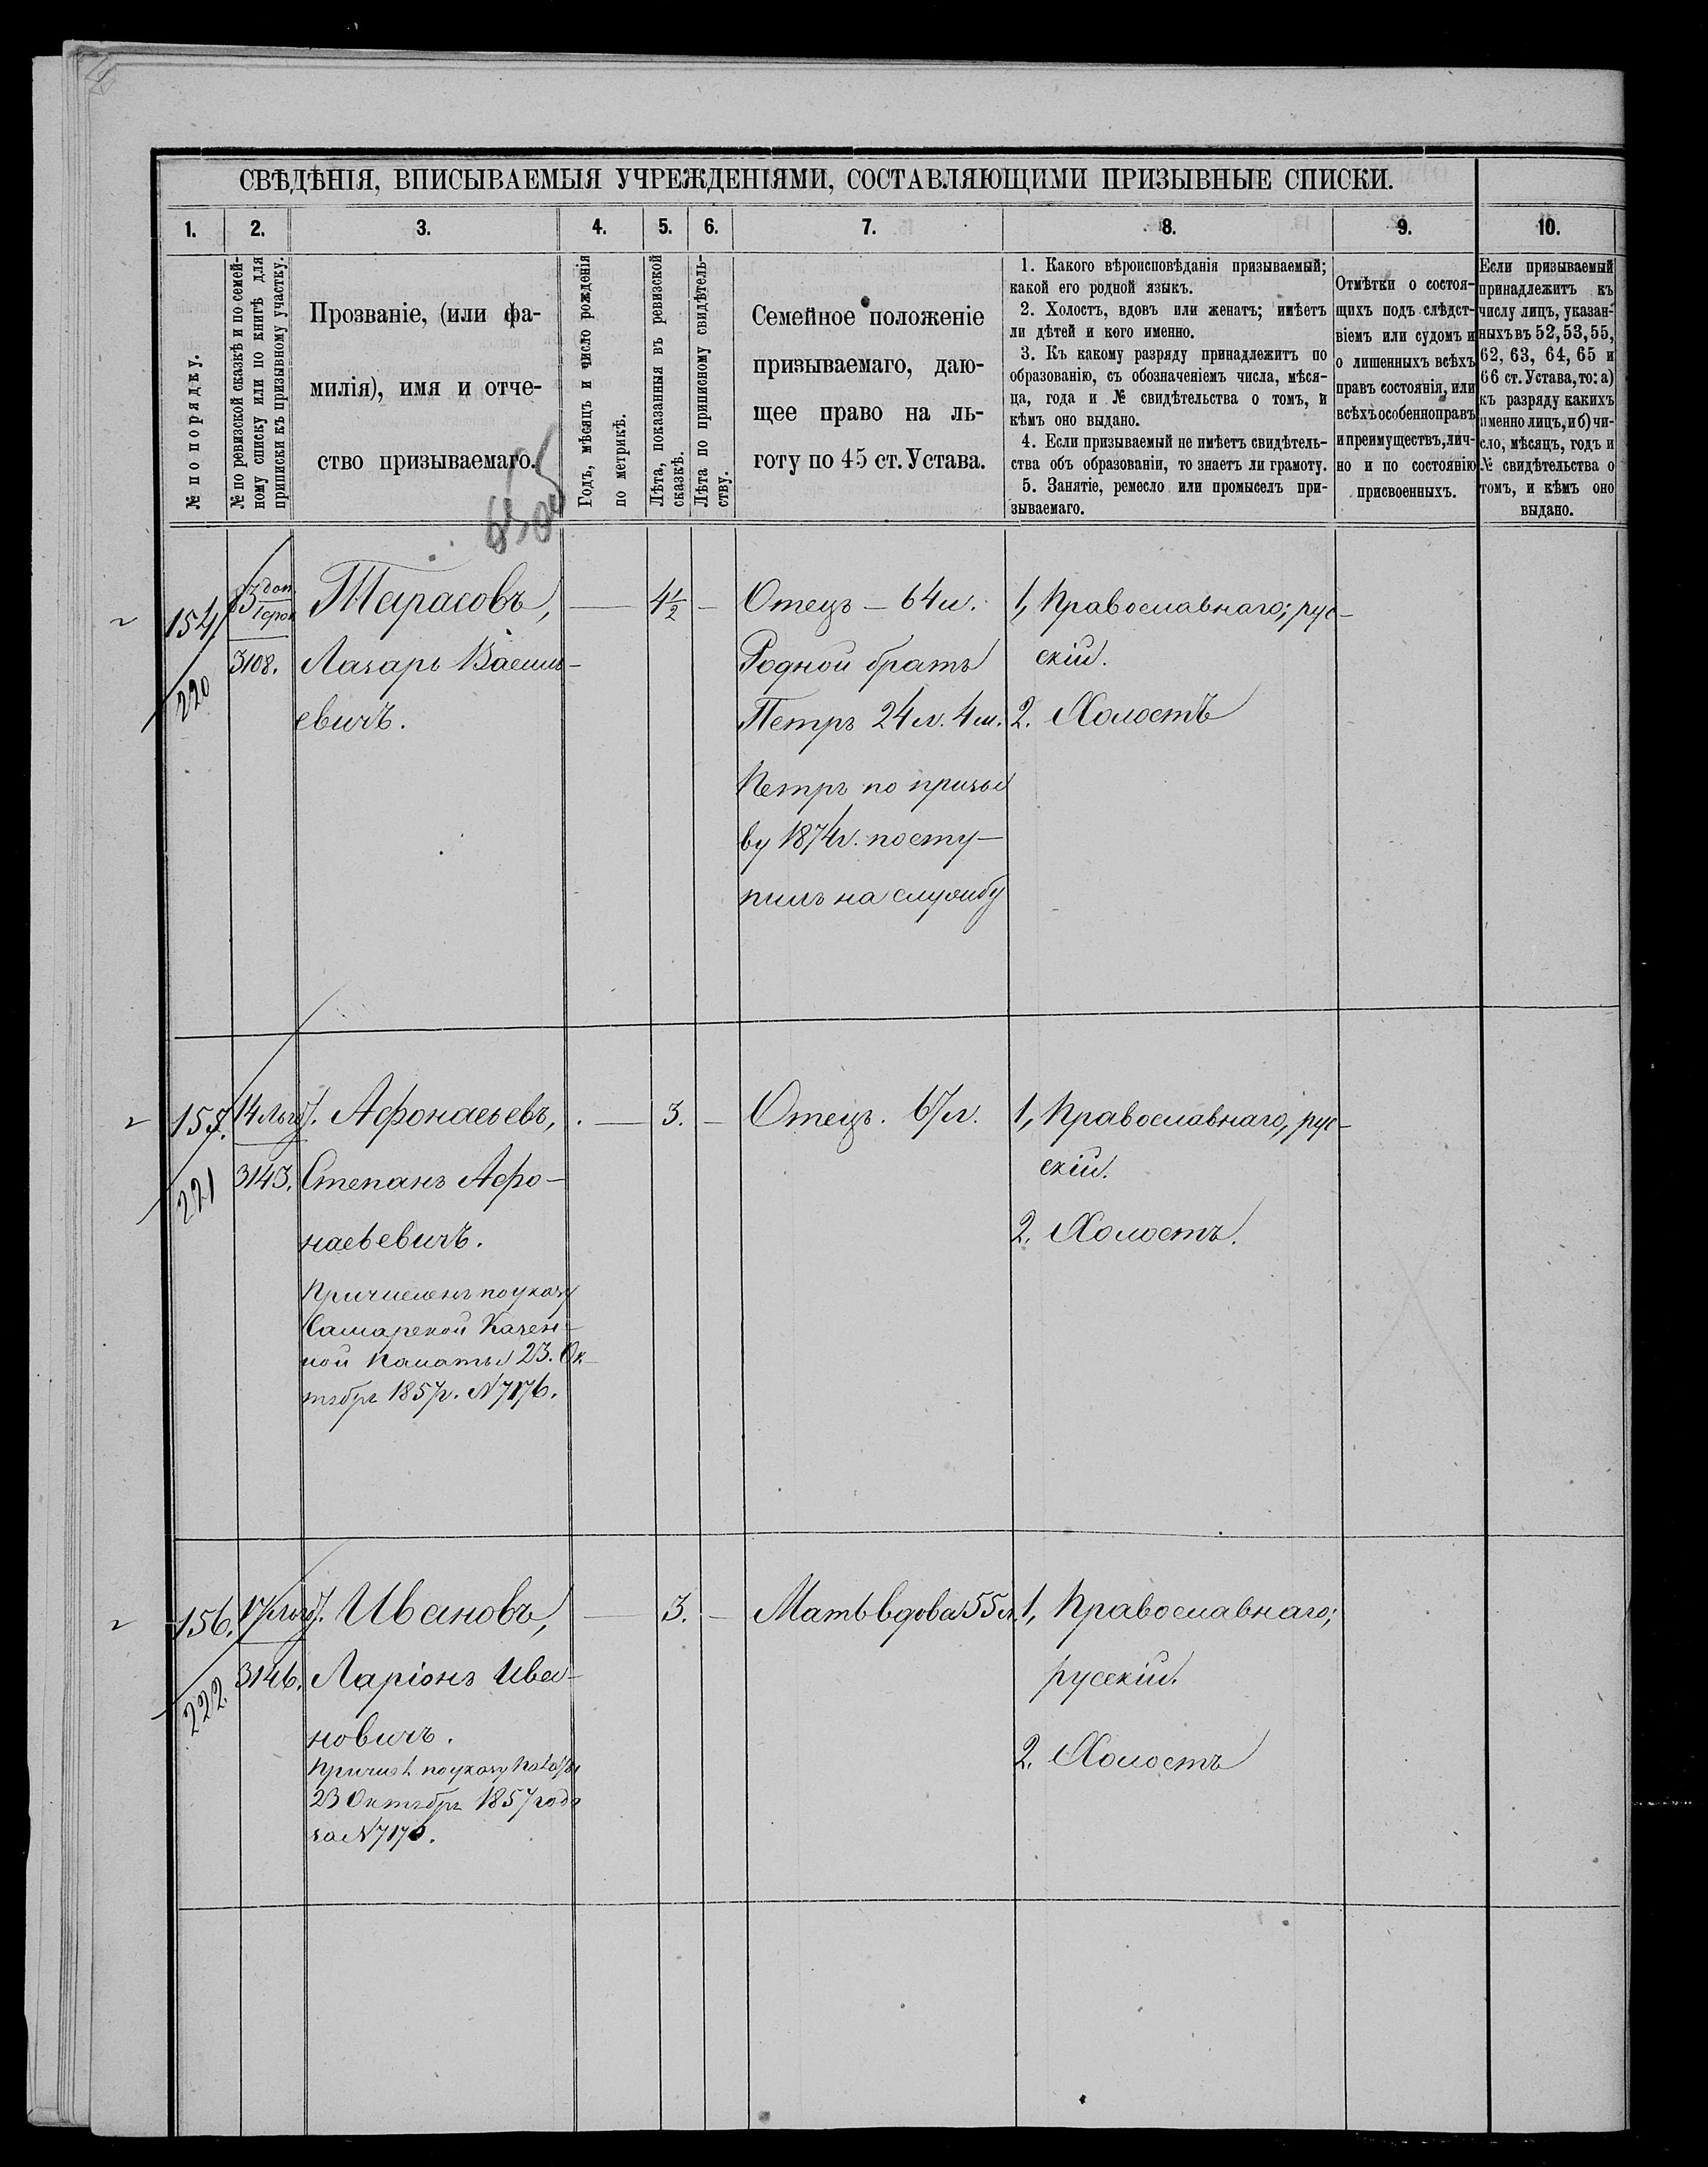 СВѢДѢНІЯ, ВПИСЫВАЕМЫЯ УЧРЕЖДЕНІЯМИ, СОСТАВЛЯЮЩИМИ ПРИЗЫВНЫЕ СПИСКИ.
1. 2. 3. 4. 5. 6. 7. 8. 9. 10.
№ по порядку.
№ по ревизской сказкѣ и по семей-
ному списку или по книгѣ для
приписки къ призывному участку.
Прозваніе, (или фа-
милія), имя и отче-
ство призываемаго.
Годъ, мѣсяцъ и число рожденія
по метрикѣ.
Лѣта, показанныя въ ревизской
сказкѣ.
Лѣта по приписному свидѣтель-
ству.
Семейное положеніе
призываемаго, даю-
щее право на ль-
готу по 45 ст. Устава.
1. Какого вѣроисповѣданія призываемый;
какой его родной языкъ.
2. Холостъ, вдовъ или женатъ; имѣетъ
ли дѣтей и кого именно.
3. Къ какому разряду принадлежитъ по
образованію, съ обозначеніемъ числа, мѣся-
ца, года и № свидѣтельства о томъ, и
кѣмъ оно выдано.
4. Если призываемый не имѣетъ свидѣтель-
ства объ образованіи, то знаетъ ли грамоту.
5. Занятіе, ремесло или промыселъ при-
зываемаго.
Отмѣтки о состоя-
щихъ подъ слѣдст-
віемъ или судомъ и
о лишенныхъ всѣхъ
правъ состоянія, или
всѣхъ особенно правъ
и преимуществъ, лич-
но и по состоянію
присвоенныхъ.
Если призываемый
принадлежитъ къ
числу лицъ, указан-
ныхъ въ 52, 53, 55,
62, 63, 64, 65 и
66 ст. Устава, то: а)
къ разряду какихъ
именно лицъ, и б) чи-
сло, мѣсяцъ, годъ и
№ свидѣтельства о
томъ, и кѣмъ оно
выдано.
154
220
доп.
3108.
Тарасовъ,
Лазарь Василь-
евичъ.
— 4½ —
Отецъ — 64 л.
Родной братъ
Петръ 24 л. 4 м.
Петръ по призы
ву 1874 г. посту-
пилъ на службу
1, Православнаго; рус-
скій.
2. Холостъ
155.
221
3143.
Афонасьевъ,
Степанъ Афо-
насьевичъ.
Причисленъ по указу
Самарской Казен-
ной Палаты 23. Ок-
тября 1857 г. № 7176.
— 3. —
Отецъ. 67 л.
1, Православнаго, рус-
скій.
2. Холостъ.
156.
222.
3146.
Ивановъ,
Ларіонъ Ива-
новичъ.
Причисл. по указу Палаты
23 Октября 1857 года
за № 7176.
— 3. —
Мать вдова 55 л.
1, Православнаго;
русскій.
2. Холостъ